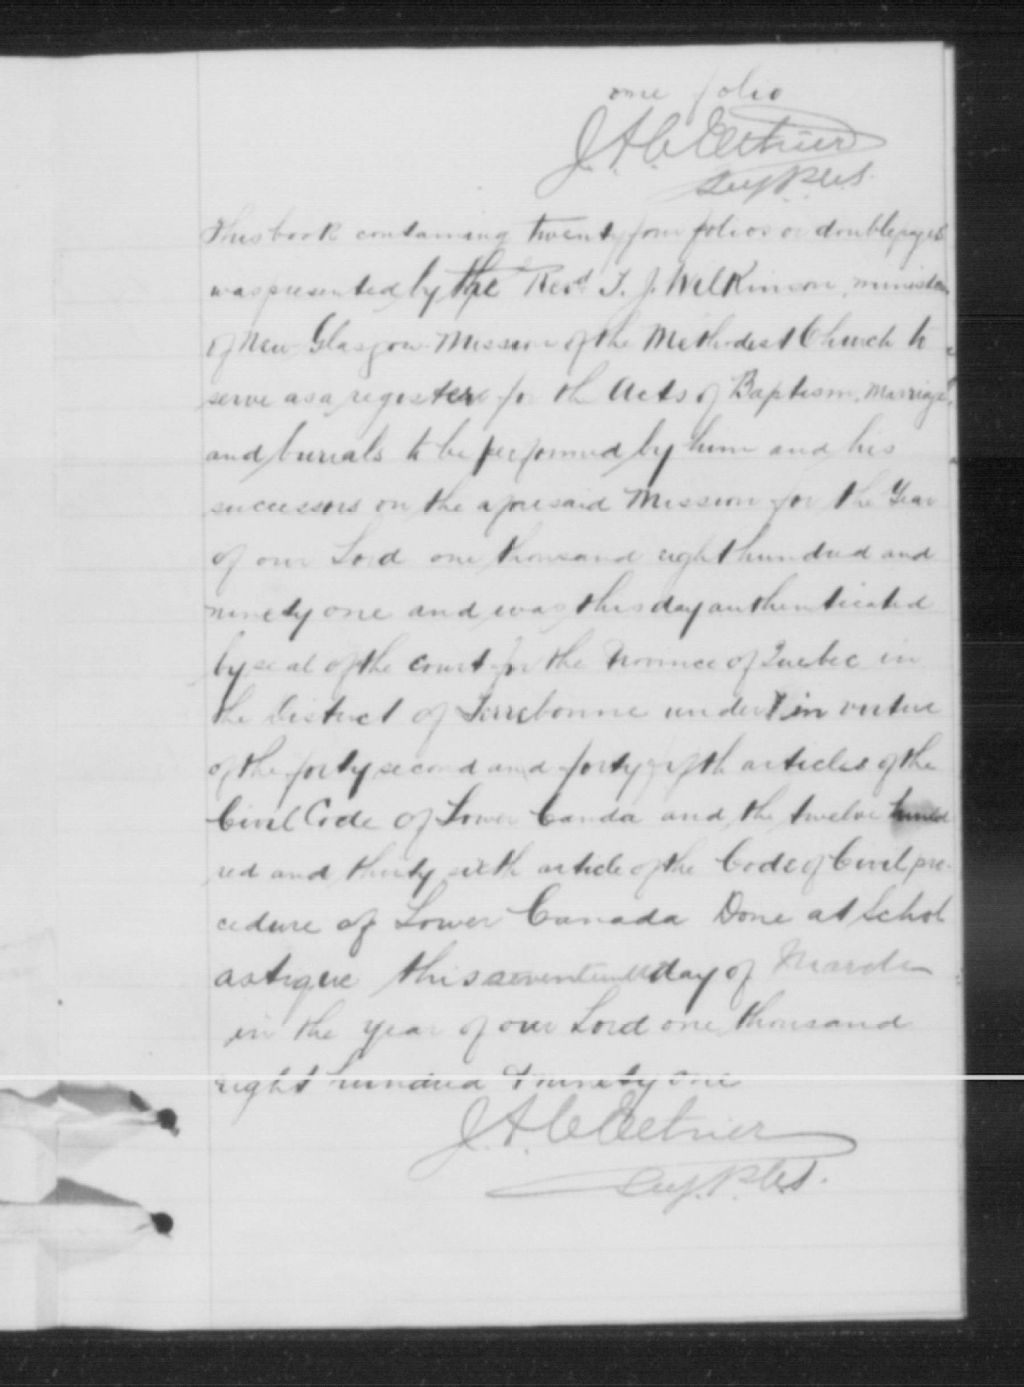 one folio
J. A. C. Ethier
Dep. P. C. S.
This book containing twenty four folios or double pages
was presented by the Revd. T. J. Wilkinson, minister
of New Glasgow Mission of the Methodist Church to
serve as a register for th Acts of Baptism, Marriage,
and burials to be performed by him and his
successors on the aforesaid Mission for the Year
of our Lord one thousand eight hundred and
ninety one and was this day authenticated
by seal of the court for the Province of Quebec in
the District of Terrebonne under & in virtue
of the forty second and forty fifth articles of the
Civil Code of Lower Canda and the twelve hund
red and thirty sixth article of the Code of Civil pro-
cedure of Lower Canada Done at Schol
astique this seventeenth day of March
in the year of our Lord one thousand
eight hundred & ninety one
J. A. C. Ethier
Dep. P. C. S.